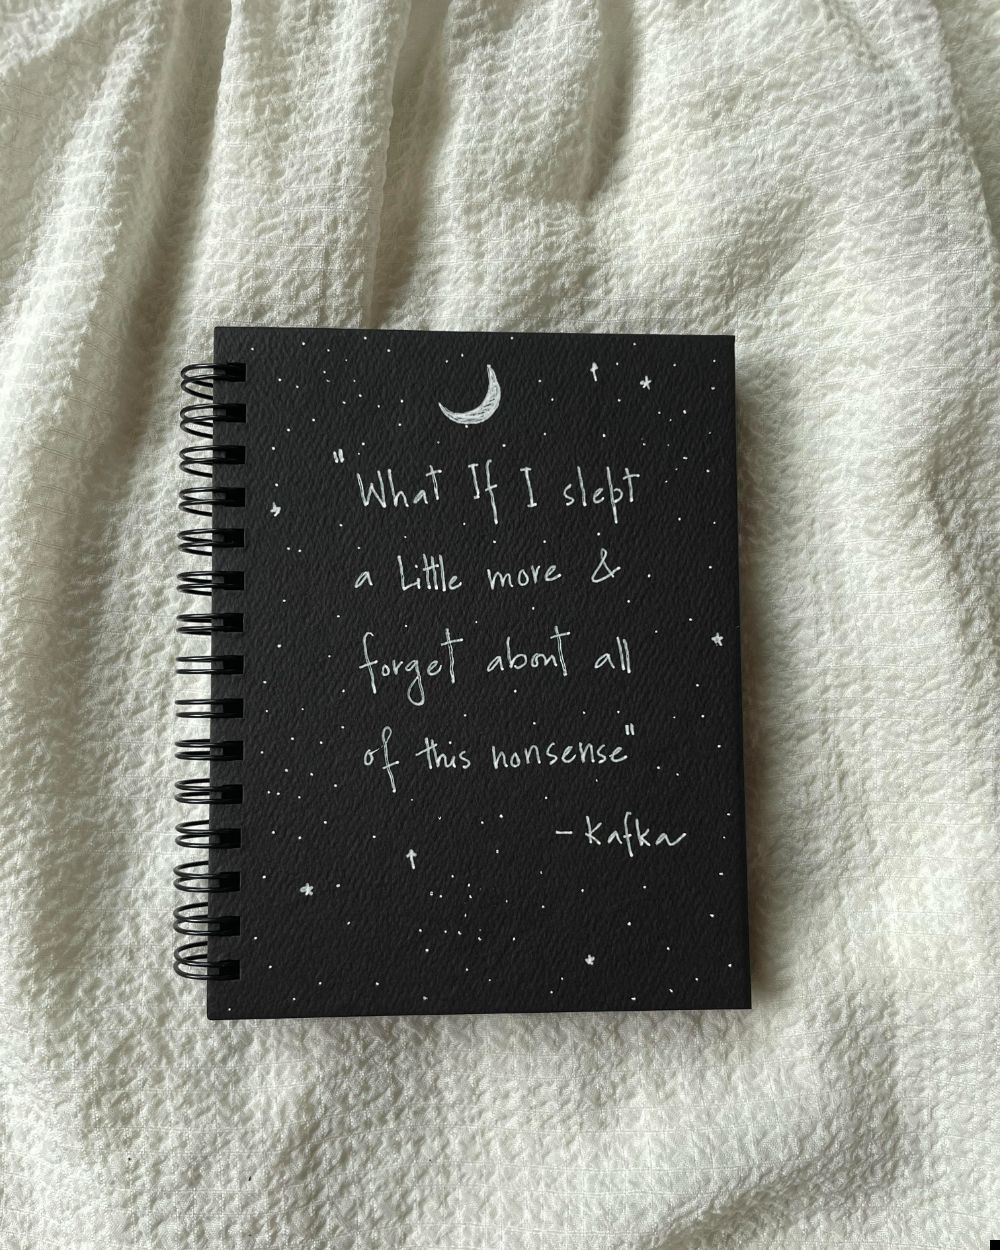 "What If I slept
a little more &
forget about all
of this nonsense"
- Kafka